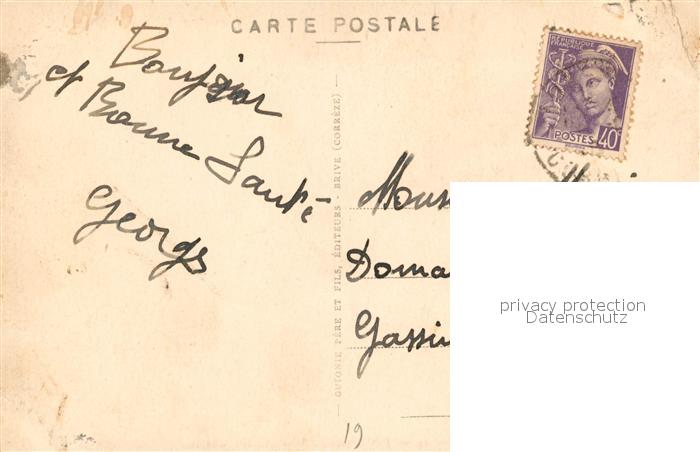 CARTE POSTALE
Bonjour
et Bonne Santé
Georges
GUIONIE PÈRE ET FILS, ÉDITEURS - BRIVE (CORRÈZE)
RÉPUBLIQUE
FRANÇAISE
POSTES 40c
19
privacy protection
Datenschutz